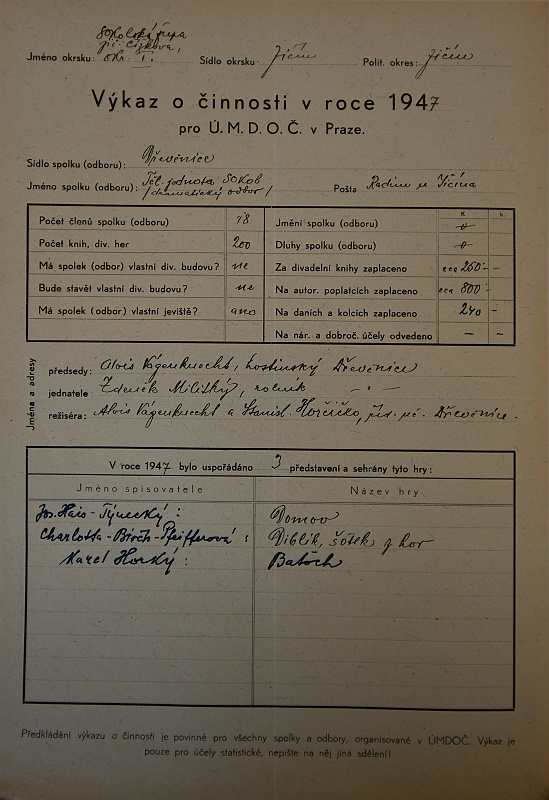 Sokolská župa
jič. Čížkova,
Jméno okrsku: okr. I. Sídlo okrsku: Jičín Polit. okres: Jičín
Výkaz o činnosti v roce 1947
pro Ú. M. D. O. Č. v Praze.
Sídlo spolku (odboru): Dřevěnice
Jméno spolku (odboru): Těl. jednota Sokol
/dramatický odbor/ Pošta Radim u Jičína
Počet členů spolku (odboru) 78
Počet knih, div. her 200
Má spolek (odbor) vlastní div. budovu? ne
Bude stavět vlastní div. budovu? ne
Má spolek (odbor) vlastní jeviště? ano
K h
Jmění spolku (odboru) 0
Dluhy spolku (odboru) 0
Za divadelní knihy zaplaceno cca 250 - -
Na autor. poplatcích zaplaceno cca 800 - -
Na daních a kolcích zaplaceno 240 -
Na nár. a dobroč. účely odvedeno - -
Jména a adresy
předsedy: Alois Vágenknecht, hostinský Dřevěnice
jednatele: Zdeněk Militký, rolník - " -
režiséra: Alois Vágenknecht a Stanisl. Horčičko, Dřevěnice.
V roce 1947 bylo uspořádáno 3 představení a sehrány tyto hry:
Jméno spisovatele Název hry
Jos. Hais-Týnecký: Domov
Charlotta-Birch-Pfeifferová: Diblík, šotek z hor
Karel Horký: Batoch
Předkládání výkazu o činnosti je povinné pro všechny spolky a odbory, organisované v ÚMDOČ. Výkaz je
pouze pro účely statistické, nepište na něj jiná sdělení!